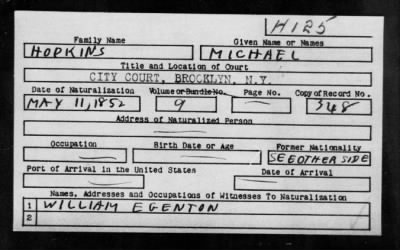 H125
Family Name Given Name or Names
HOPKINS MICHAEL
Title and Location of Court
CITY COURT, BROOKLYN, N.Y.
Date of Naturalization Volume or Bundle No. Page No. Copy of Record No.
MAY 11, 1852 9 — 348
Address of Naturalized Person
Occupation Birth Date or Age Former Nationality
— — SEE OTHER SIDE
Port of Arrival in the United States Date of Arrival
— —
Names, Addresses and Occupations of Witnesses To Naturalization
1 WILLIAM EGENTON
2